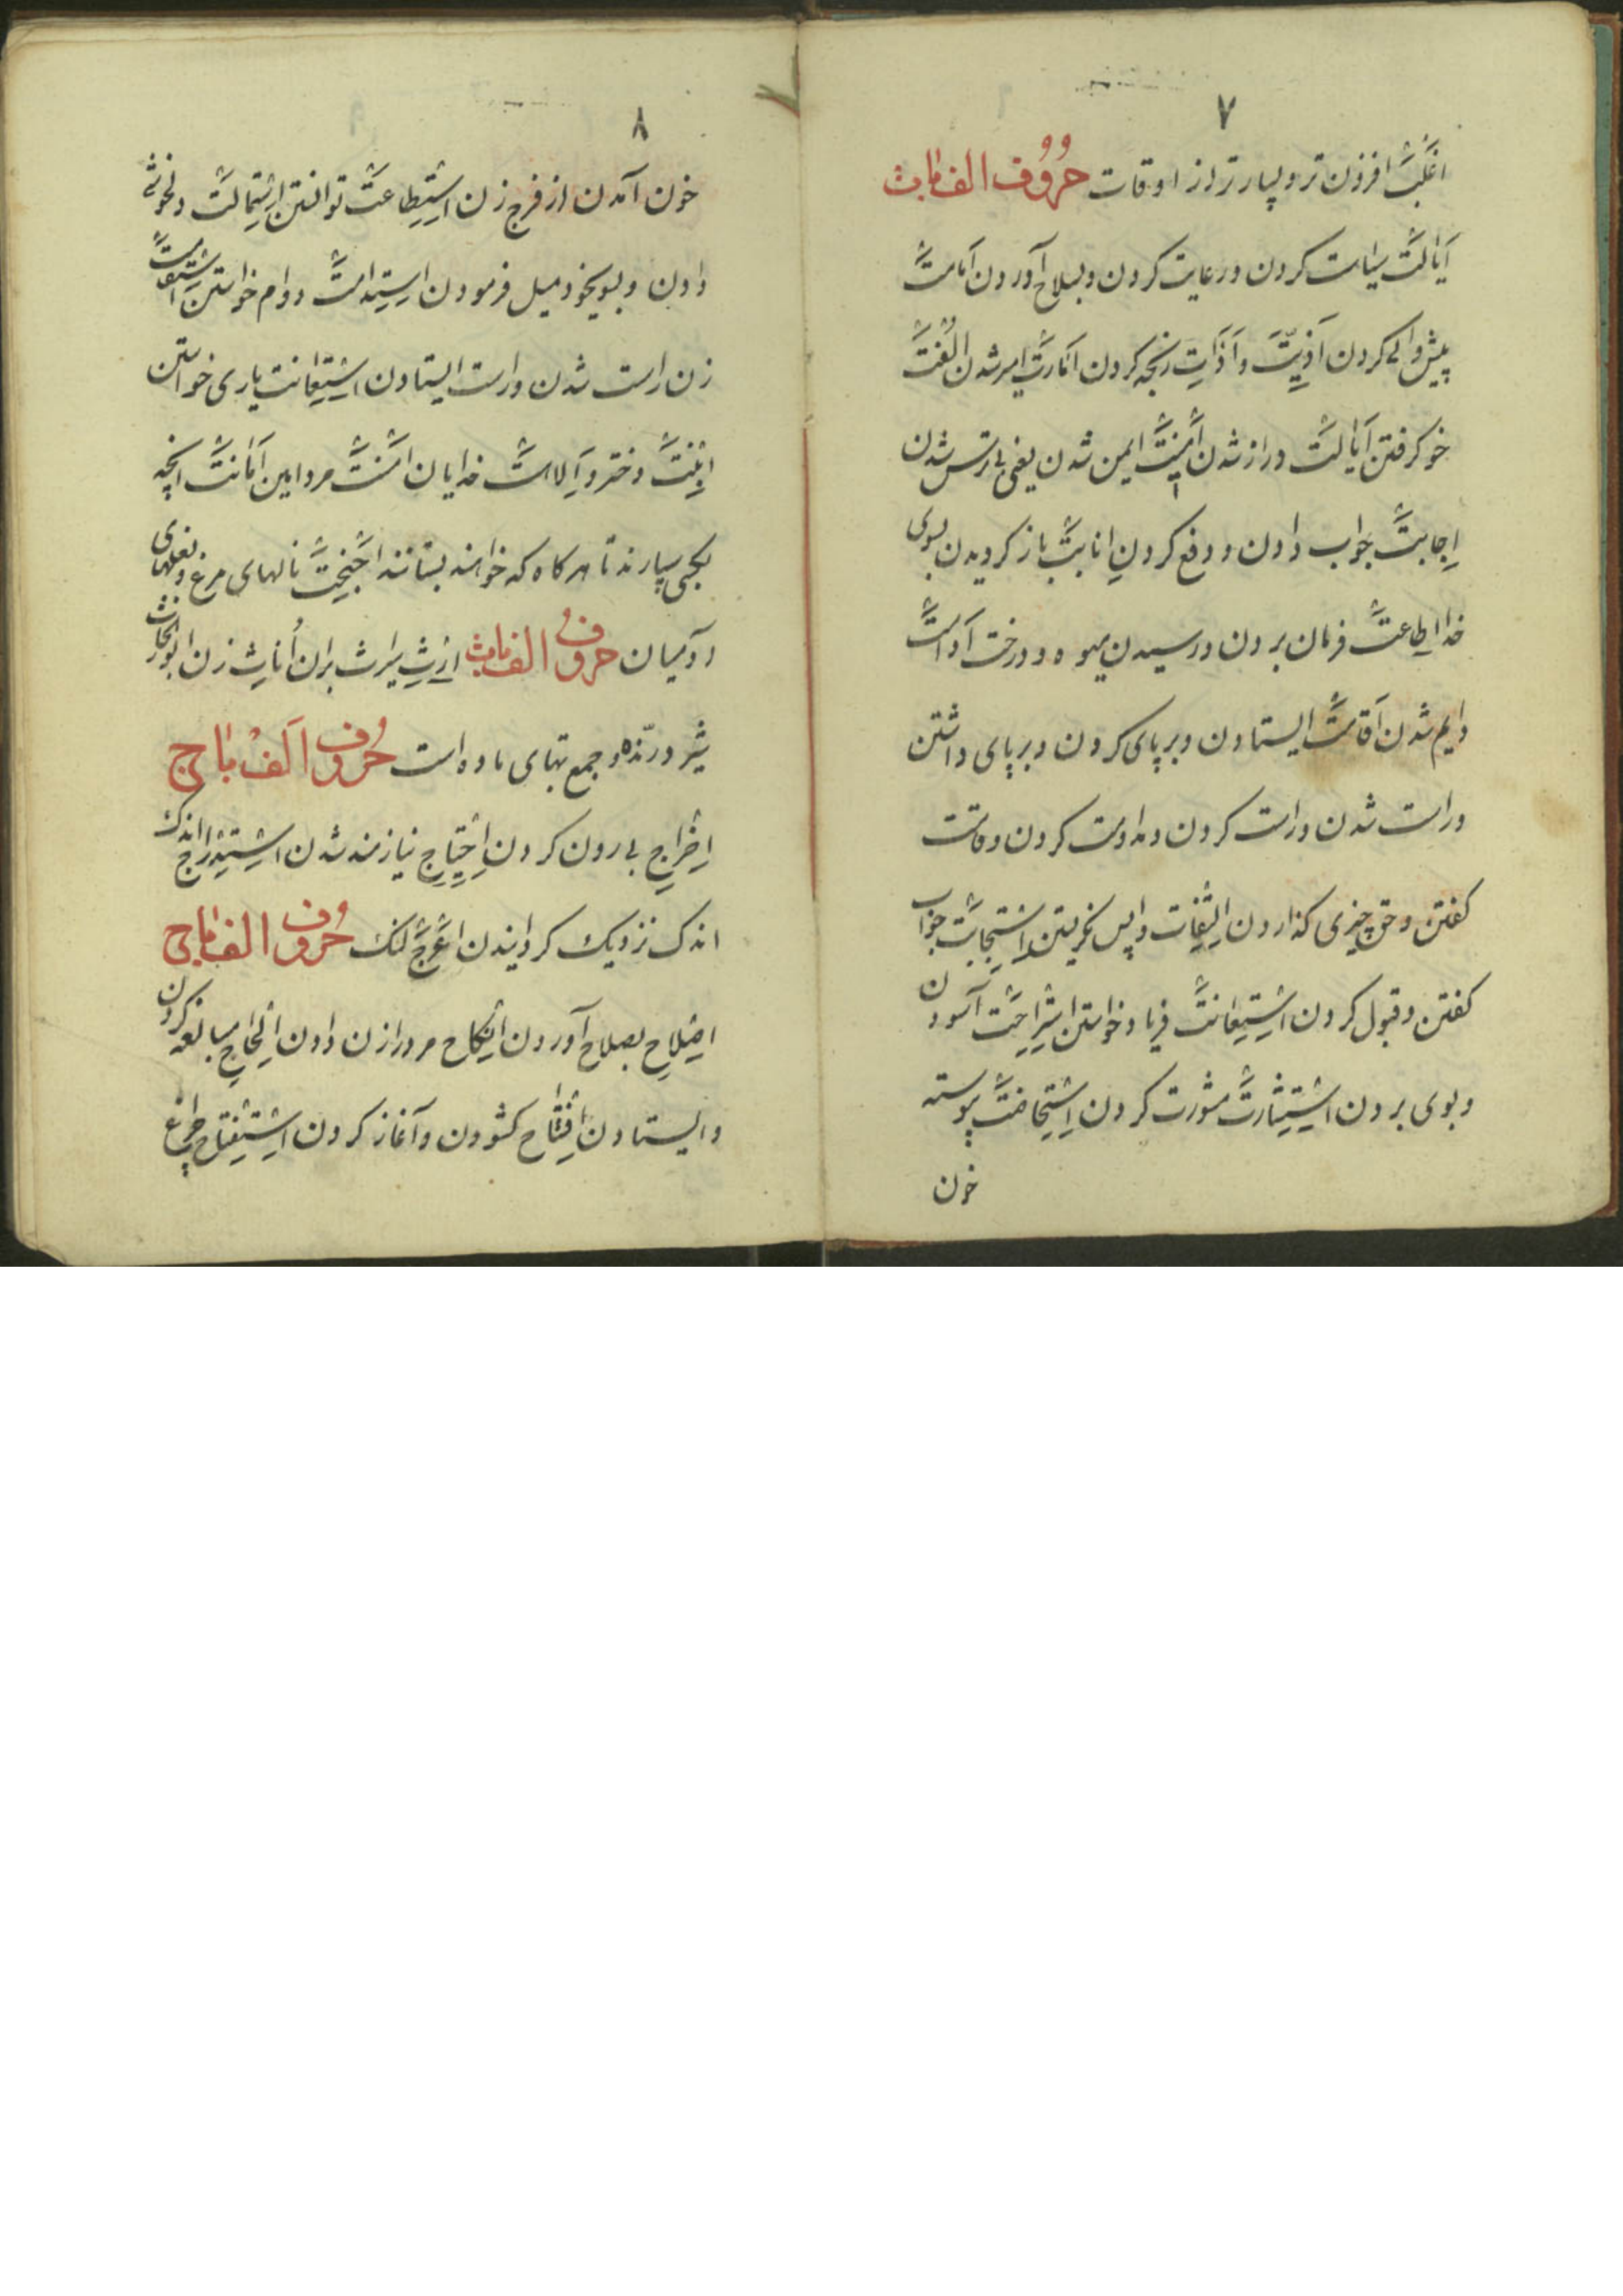 ۷
اغلب افزون تر و بسیار تر از اوقات حروف الف باب ت
ایالت سیاست کردن و رعایت کردن و بصلاح آوردن امامت
پیش والی کردن اذیت و اذات رنجه کردن امارت امیر شدن الفت
خو کرفتن ایالت دراز شدن امنیت ایمن شدن یعنی بی ترس شدن
اجابت جواب دادن و دفع کردن انابت باز کردیدن بسوی
خدا اطاعت فرمان بردن و رسیدن میوه و درخت ادامت
دایم شدن اقامت ایستادن و بر پای کردن و بر پای داشتن
و راست شدن و راست کردن و مداومت کردن و قامت
کفتن و حق چیزی کذاردن التفات واپس نکریستن استجابت جواب
کفتن و قبول کردن استغاثت فریاد خواستن استراحت آسودن
و بوی بردن استشارت مشورت کردن استحاضت پیوسته
خون
۸
خون آمدن از فرج زن استطاعت توانستن استمالت دلخوشی
دادن و بسوی خود میل فرمودن استدامت دوام خواستن استقامت
زن راست شدن و راست ایستادن استعانت یاری خواستن
ابنت دختر و آلاست خدایان امنت مرد امین امانت انچه
بکسی سپارند تا هرکاه که خواهند بستانند اجنحت بالهای مرغ و بغلهای
آدمیان حروف الف باب ث ارث میراث بران اناث زن ابوالحارث
شیر درنده و جمع بتهای ماده است حروف الف باب ج
اخراج بیرون کردن احتیاج نیازمند شدن استدراج اندک
اندک نزدیک کردانیدن اعرج لنک حروف الف باب ح
اصلاح بصلاح آوردن انکاح مرد را زن دادن الحاح مبالغه کردن
و ایستادن افتتاح کشودن و آغاز کردن استفتاح چراغ